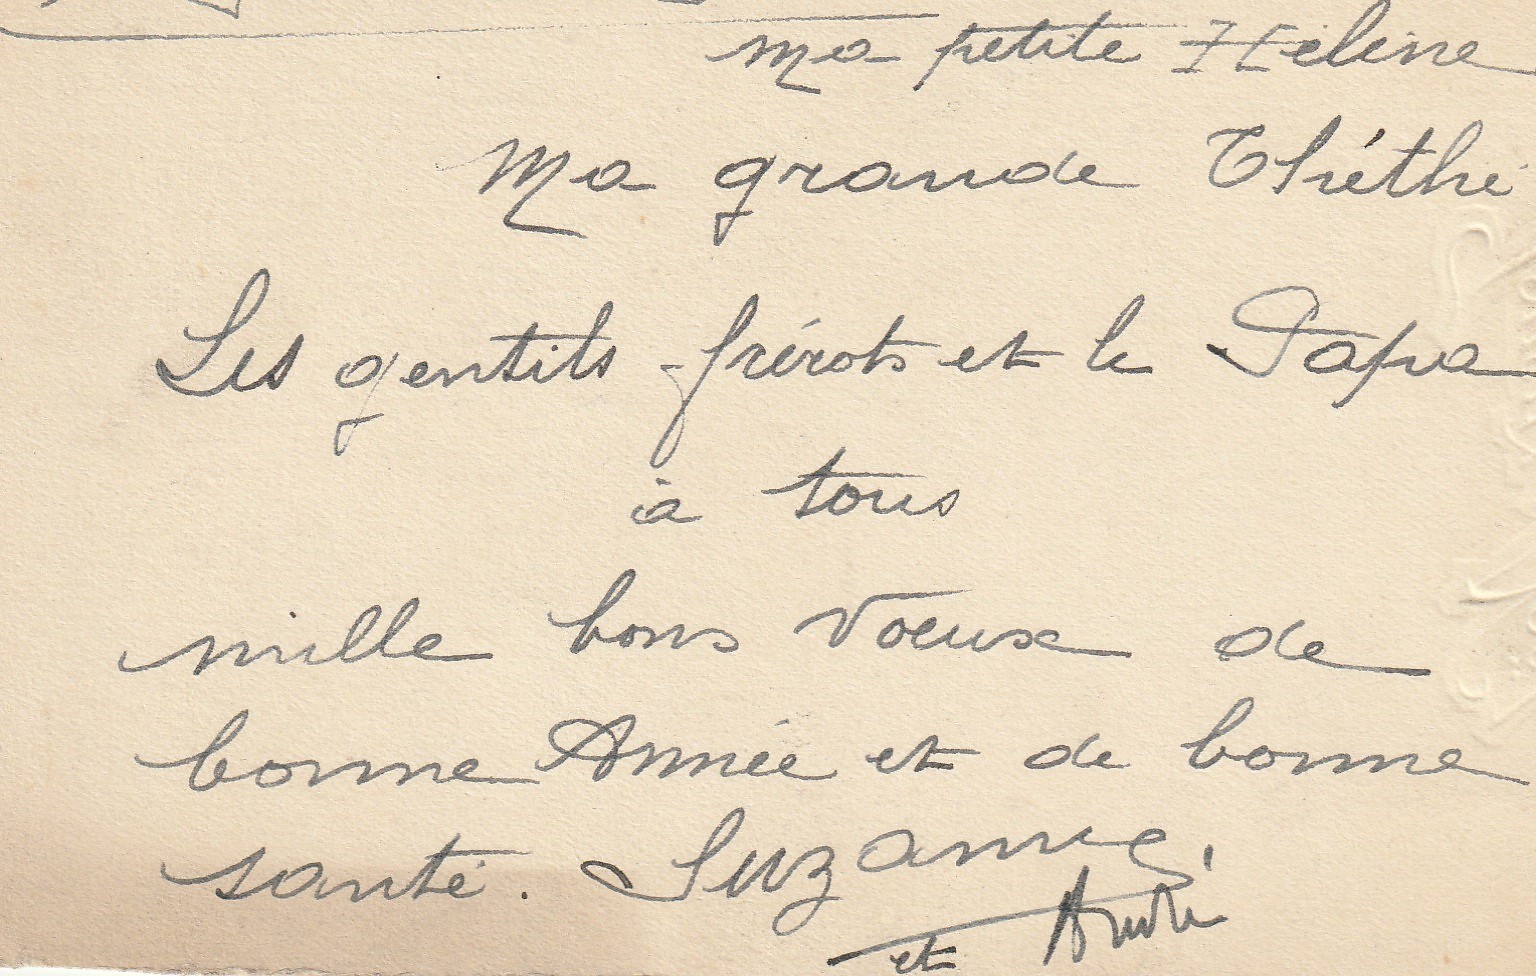 ma petite Hélène
Ma grande Théthé
Les gentils frérots et le Papa
à tous
mille bons voeux de
bonne Année et de bonne
santé. Suzanne,
et André